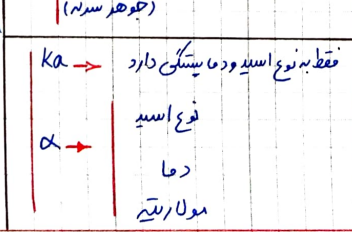 (جوهر سرکه)
Ka → فقط به نوع اسید و دما بستگی دارد
α → نوع اسید
دما
مولاریته